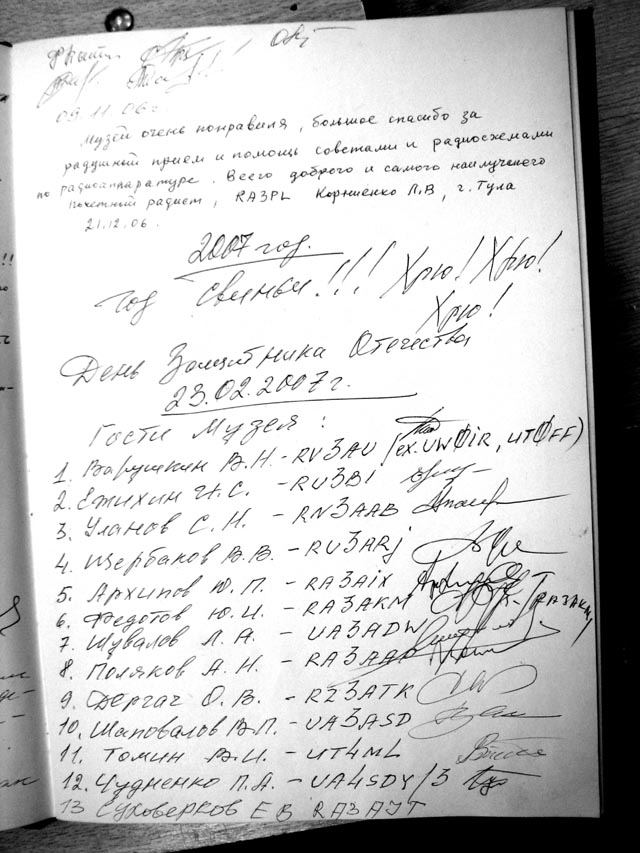 09.11.06г
Музей очень понравился, большое спасибо за
радушный прием и помощь советами и радиосхемами
по радиоаппаратуре. Всего доброго и самого наилучшего
Почетный радист, RA3PL Корниенко Л.В, г. Тула
21.12.06.
2007 год.
год Свиньи!!! Хрю! Хрю!
Хрю!
День Защитника Отечества
23.02.2007г.
Гости Музея:
1. Варушкин В.Н. - RV3AU (ex. UW0iR, UT0FF)
2. Ежихин И.С. - RU3BI
3. Уланов С.Н. - RN3AAB
4. Щербаков В.В. - RU3ARj
5. Архипов Ю.П. - RA3AiX
6. Федотов Ю.И. - RA3AKM (RA3AKM)
7. Шувалов Л.А. - UA3ADW
8. Поляков А.Н. - RA3AAP
9. Дергач О.В. - RZ3ATK
10. Шаповалов В.П. - UA3ASD
11. Томин В.И. - UT4ML
12. Чудненко П.А. - UA4SDY/3
13 Суховерков Е В RA3AJT